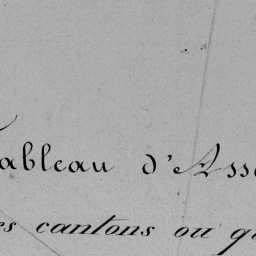 Tableau d'Ass
es cantons ou q